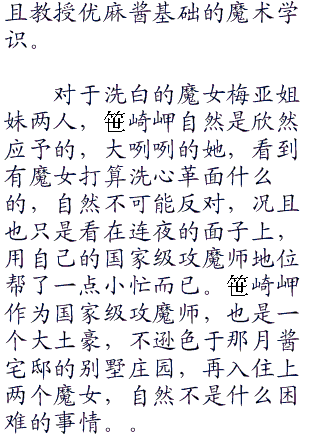 且教授优麻酱基础的魔术学
识。
对于洗白的魔女梅亚姐
妹两人，笹崎岬自然是欣然
应予的，大咧咧的她，看到
有魔女打算洗心革面什么
的，自然不可能反对，况且
也只是看在连夜的面子上，
用自己的国家级攻魔师地位
帮了一点小忙而已。笹崎岬
作为国家级攻魔师，也是一
个大土豪，不逊色于那月酱
宅邸的别墅庄园，再入住上
两个魔女，自然不是什么困
难的事情。。